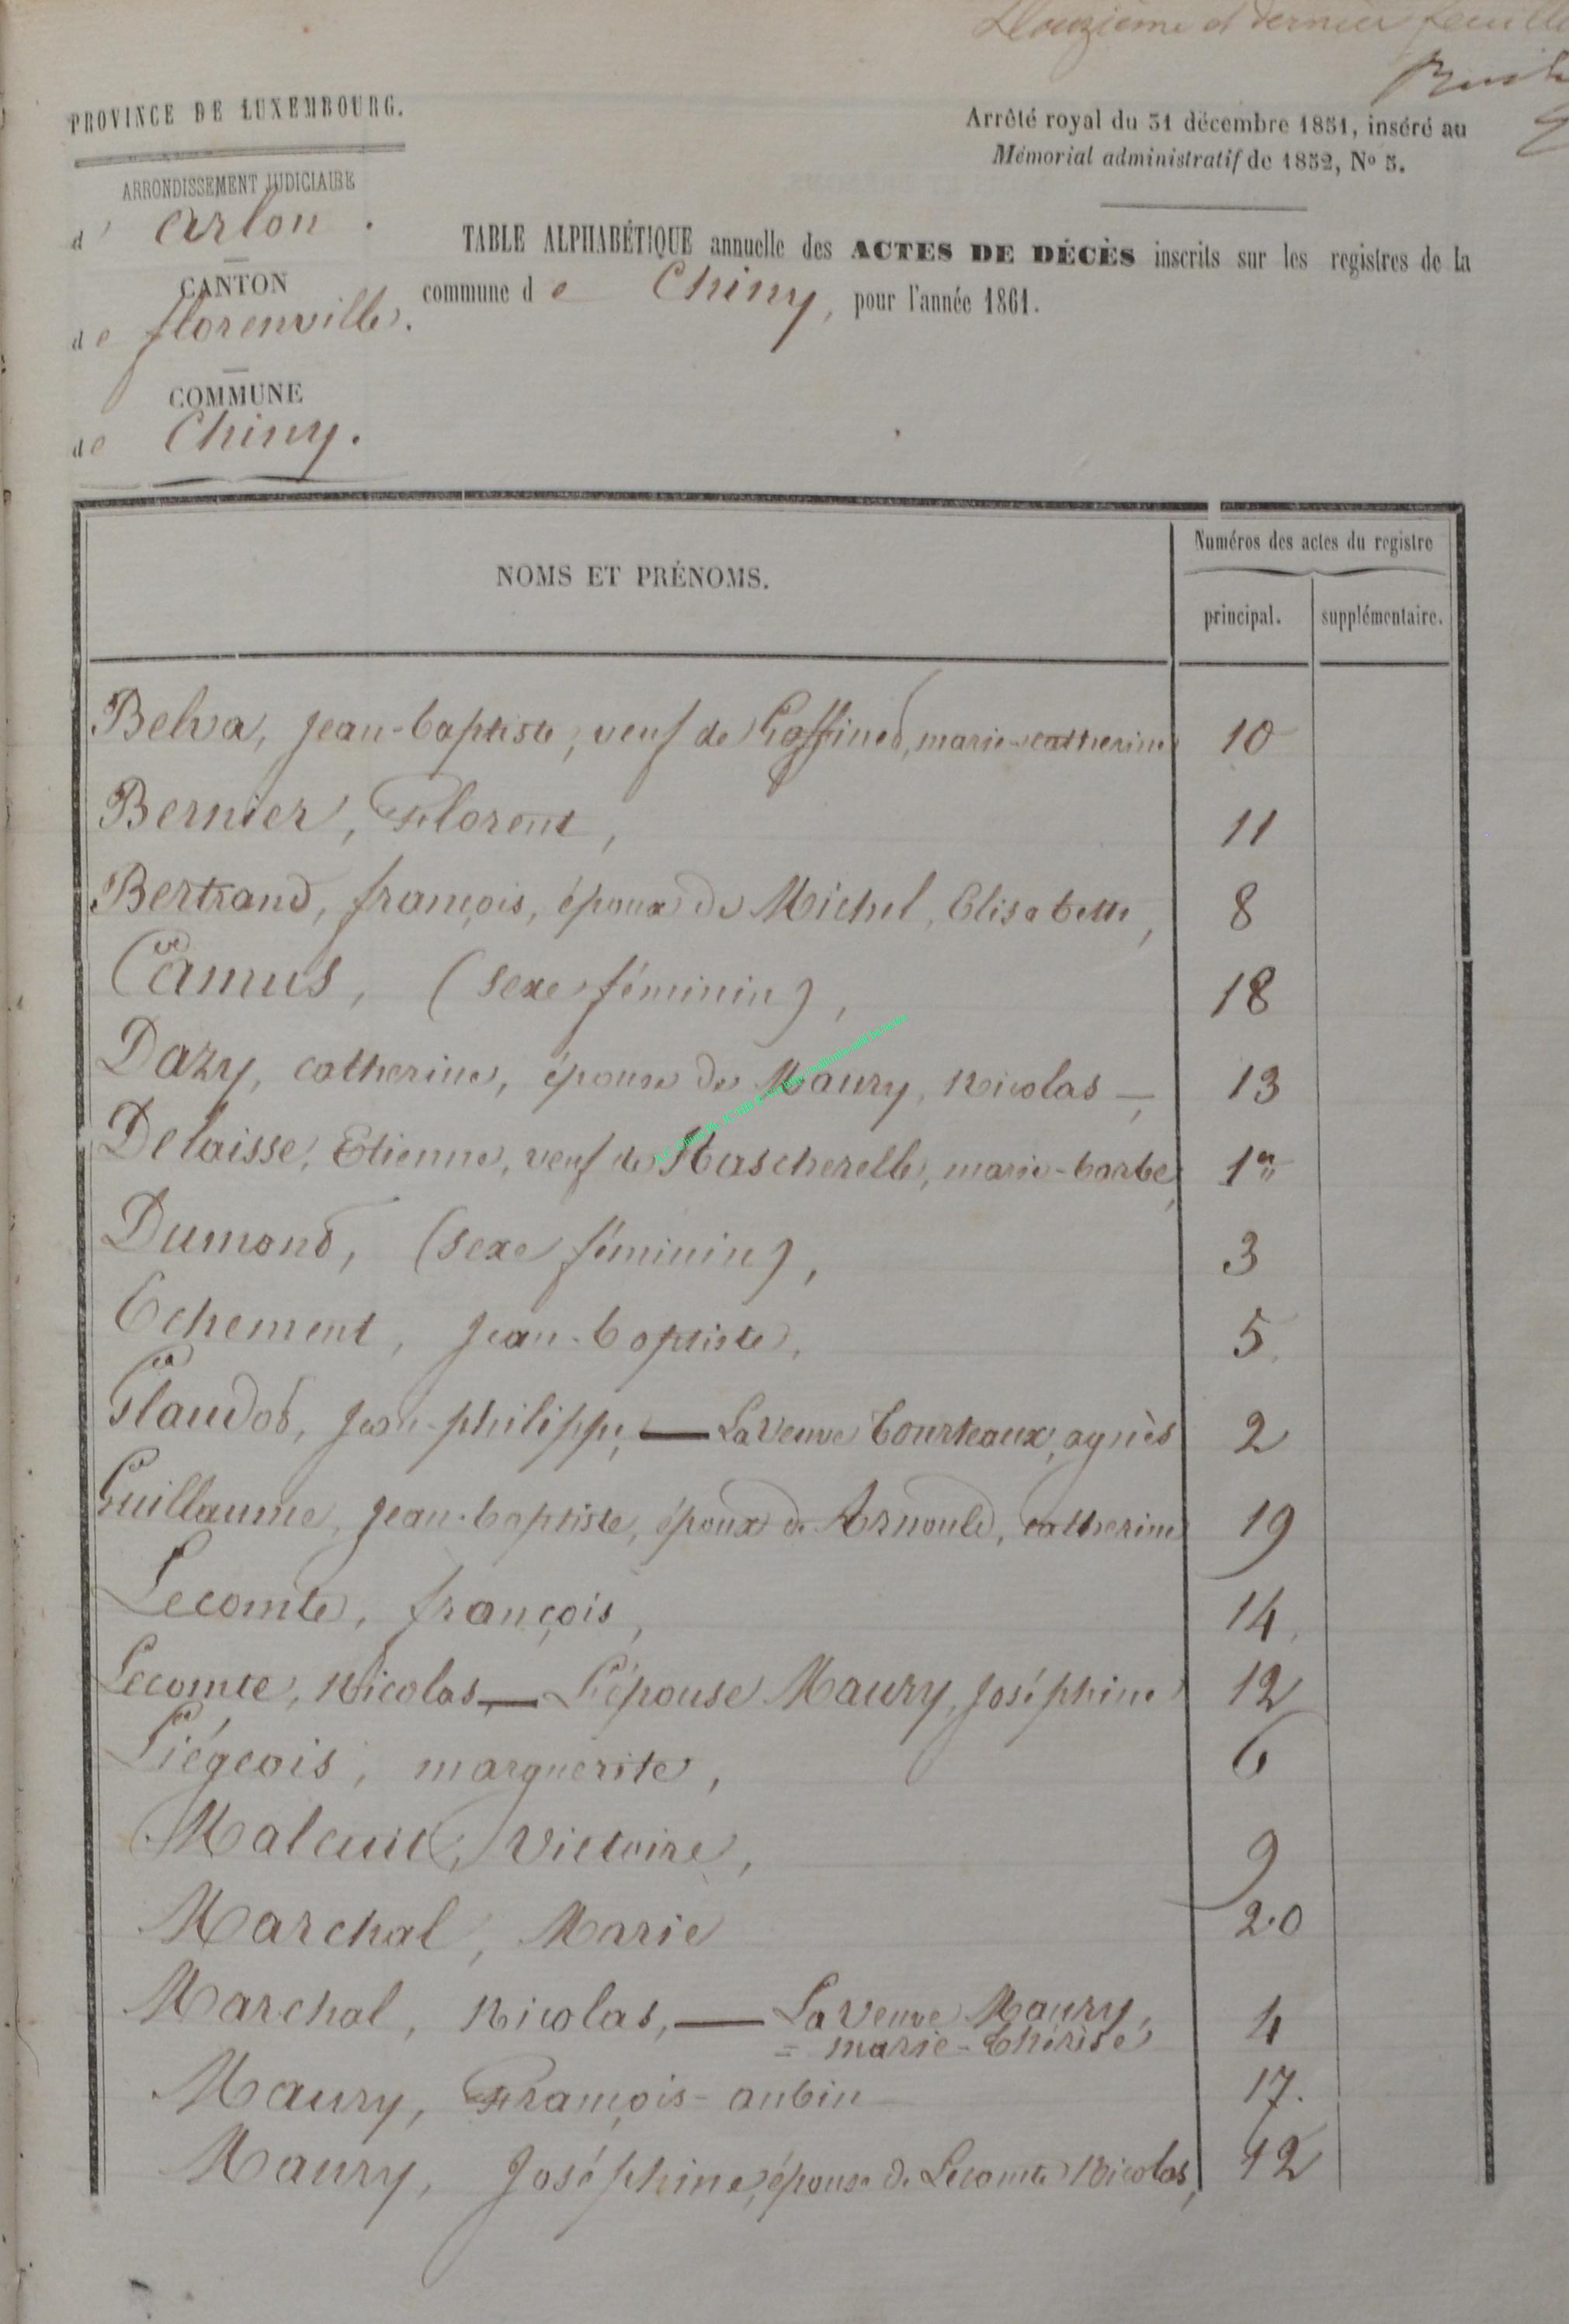 Douzième et dernier feuille
PROVINCE DE LUXEMBOURG.
Arrêté royal du 31 décembre 1851, inséré au
Mémorial administratif de 1852, No 5.
ARRONDISSEMENT JUDICIAIRE
d' Arlon.
CANTON
de florenville.
COMMUNE
de Chiny.
TABLE ALPHABÉTIQUE annuelle des ACTES DE DÉCÈS inscrits sur les registres de la
commune de Chiny, pour l'année 1861.
NOMS ET PRÉNOMS.
Numéros des actes du registre
principal. supplémentaire.
Belva, jean-baptiste, veuf de Goffinet, marie-catherine 10
Bernier, Florent, 11
Bertrand, françois, époux de Michel, Elisabeth, 8
Camus, (sexe féminin), 18
Dazy, catherine, épouse de Maury, Nicolas —, 13
Delaisse, Etienne, veuf de Mascherelle, marie-barbe, 1er
Dumond, (sexe féminin), 3
Echement, jean-baptiste, 5.
Glaudot, jean-philippe, — La Veuve Tourteaux, agnès 2
Guillaume, jean-baptiste, époux de Arnould, catherine 19
Lecomte, françois, 14.
Lecomte, Nicolas, — L'épouse Maury, Joséphine 12
Liégeois, marguerite, 6
Malcuit, Victoire, 9
Marchal, Marie 20
Marchal, Nicolas, — La Veuve Maury, 4
= marie-thérèse
Maury, François-aubin 17.
Maury, Joséphine, épouse de Lecomte Nicolas, 12